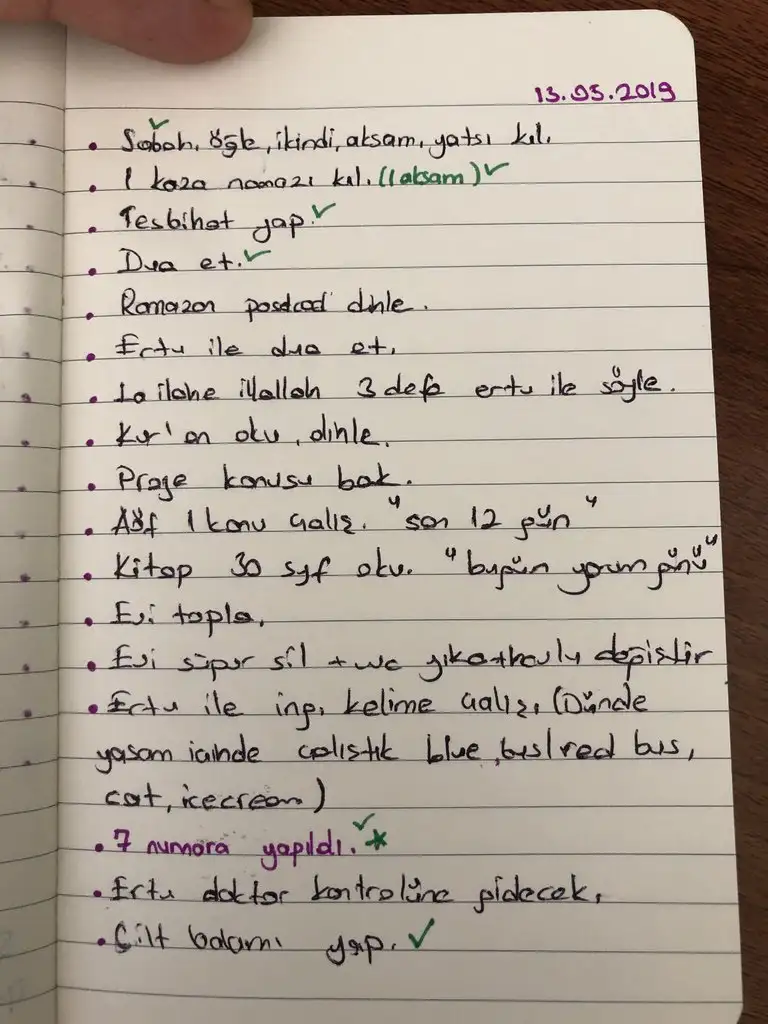 13.05.2019
• Sabah, öğle, ikindi, aksam, yatsı kıl.
• 1 kaza namazı kıl. (1 aksam)
• Tesbihat yap.
• Dua et.
• Ramazan podcad dinle.
• Ertu ile dua et.
• La ilahe illallah 3 defa ertu ile söyle.
• Kur'an oku, dinle.
• Proje konusu bak.
• Aöf 1 konu çalış. "son 12 gün"
• Kitap 30 syf oku. "bugün yorum günü"
• Evi topla.
• Evi süpür sil + wc yıka + havlu değiştir
• Ertu ile ing. kelime çalış. (Dünde
yasam içinde çalıstık blue, bus/red bus,
cat, icecream)
• 7 numara yapıldı. *
• Ertu doktor kontrolüne gidecek.
• Cilt bakamı yap.